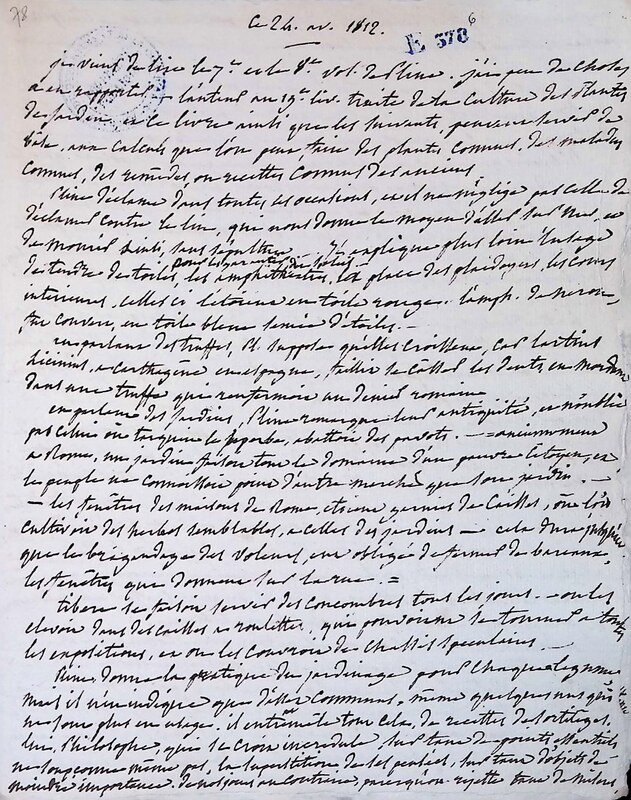 78
ce 24. av. 1812.
6
E 378
je viens de lire le 7e. et le 8e. vol. de Pline. j'ai peu de choses
a en rapporter – l'auteur au 19e. liv. traite de la culture des plantes
de jardin, et ce livre ainsi que les suivants, peuvent servir de
base, aux calculs que l'on peut faire des plantes connues, des maladies
connues, des remèdes, ou recettes connus des anciens
Pline déclame dans toutes les occasions, et il ne néglige pas celle de
déclamer contre le lin, qui nous donne le moyen d'aller sur mer, et
de mourir sans sépulture explique plus loin l'usage
de tendre des toiles, les amphithéâtres, la place des plaidoyers, les cours
intérieures, celles ci étoient en toile rouge. l'amph. de néron
fut couvert, en toile bleue semée d'étoiles. –
en parlant des truffes, Pl. suppose qu'elles croissent, car lartius
licinius, a Carthagene en espagne, faillit se casser les dents, en mordant
dans une truffe qui renfermoit un denier romain
en parlant des jardins, Pline remarque leur antiquité, et n'oublie
pas celui où tarquin le superbe, abattit des pavots. – anciennement
a Rome, un jardin faisoit tout le domaine d'un pauvre citoyen, et
le peuple ne connoissoit point d'autre marché que son jardin. –
– les fenêtres des maisons de Rome, étoient garnies de caisses, où l'on
cultivoit des herbes semblables, a celles des jardins – cela dura jusqu'à
que le brigandage des voleurs, eut obligé de fermer de barreaux
les fenêtres qui donnent sur la rue. =
tibere se faisoit servir des concombres tous les jours. – on les
elevoit dans des caisses a roulettes, qui pouvoient se tourner a toutes
les expositions, et on les couvroit de chassis speculaires. –
Pline, donne la pratique du jardinage pour chaque legume
mais il n'en indique que d'assez communs, même quelques uns qui
ne sont plus en usage. il entremêle tout cela, de recettes de sortileges,
lui, Philosophe, qui se croit incredule sur tant de points essentiels
ne soupçonne même pas, la superstition de ses pensées, sur tant d'objets de
moindre importance. de nos jours au contraire, parce qu'on rejette tant de